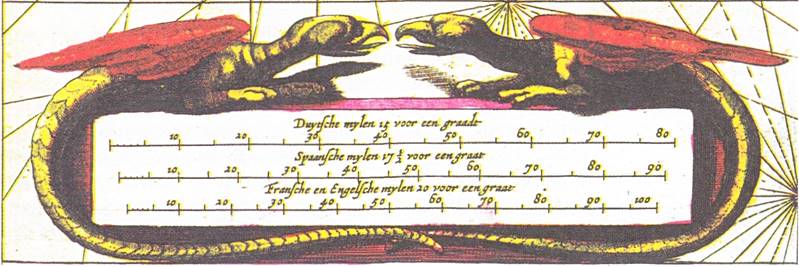 Duytsche mylen 15 voor een graadt
10 20 30 40 50 60 70 80
Spaansche mylen 17 ½ voor een graat
10 20 30 40 50 60 70 80 90
Fransche en Engelsche mylen 20 voor een graat
10 20 30 40 50 60 70 80 90 100